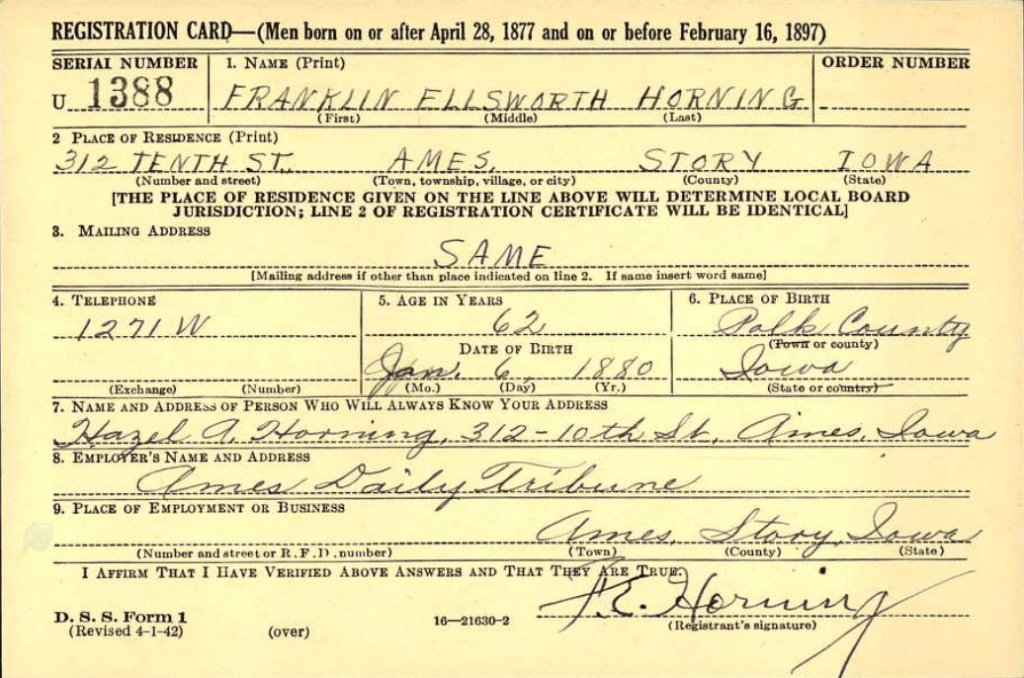 REGISTRATION CARD—(Men born on or after April 28, 1877 and on or before February 16, 1897)
SERIAL NUMBER 1. NAME (Print) ORDER NUMBER
U 1388 FRANKLIN ELLSWORTH HORNING
(First) (Middle) (Last)
2 PLACE OF RESIDENCE (Print)
312 TENTH ST. AMES, STORY IOWA
(Number and street) (Town, township, village, or city) (County) (State)
[THE PLACE OF RESIDENCE GIVEN ON THE LINE ABOVE WILL DETERMINE LOCAL BOARD
JURISDICTION; LINE 2 OF REGISTRATION CERTIFICATE WILL BE IDENTICAL]
3. MAILING ADDRESS
SAME
[Mailing address if other than place indicated on line 2. If same insert word same]
4. TELEPHONE 5. AGE IN YEARS 6. PLACE OF BIRTH
1271 W 62 Polk County
DATE OF BIRTH (Town or county)
Jan. 6, 1880 Iowa
(Exchange) (Number) (Mo.) (Day) (Yr.) (State or country)
7. NAME AND ADDRESS OF PERSON WHO WILL ALWAYS KNOW YOUR ADDRESS
Hazel A. Horning, 312-10th St, Ames, Iowa
8. EMPLOYER'S NAME AND ADDRESS
Ames Daily Tribune
9. PLACE OF EMPLOYMENT OR BUSINESS
Ames, Story, Iowa
(Number and street or R. F. D. number) (Town) (County) (State)
I AFFIRM THAT I HAVE VERIFIED ABOVE ANSWERS AND THAT THEY ARE TRUE.
F. E. Horning
D. S. S. Form 1 16—21630-2 (Registrant's signature)
(Revised 4-1-42) (over)